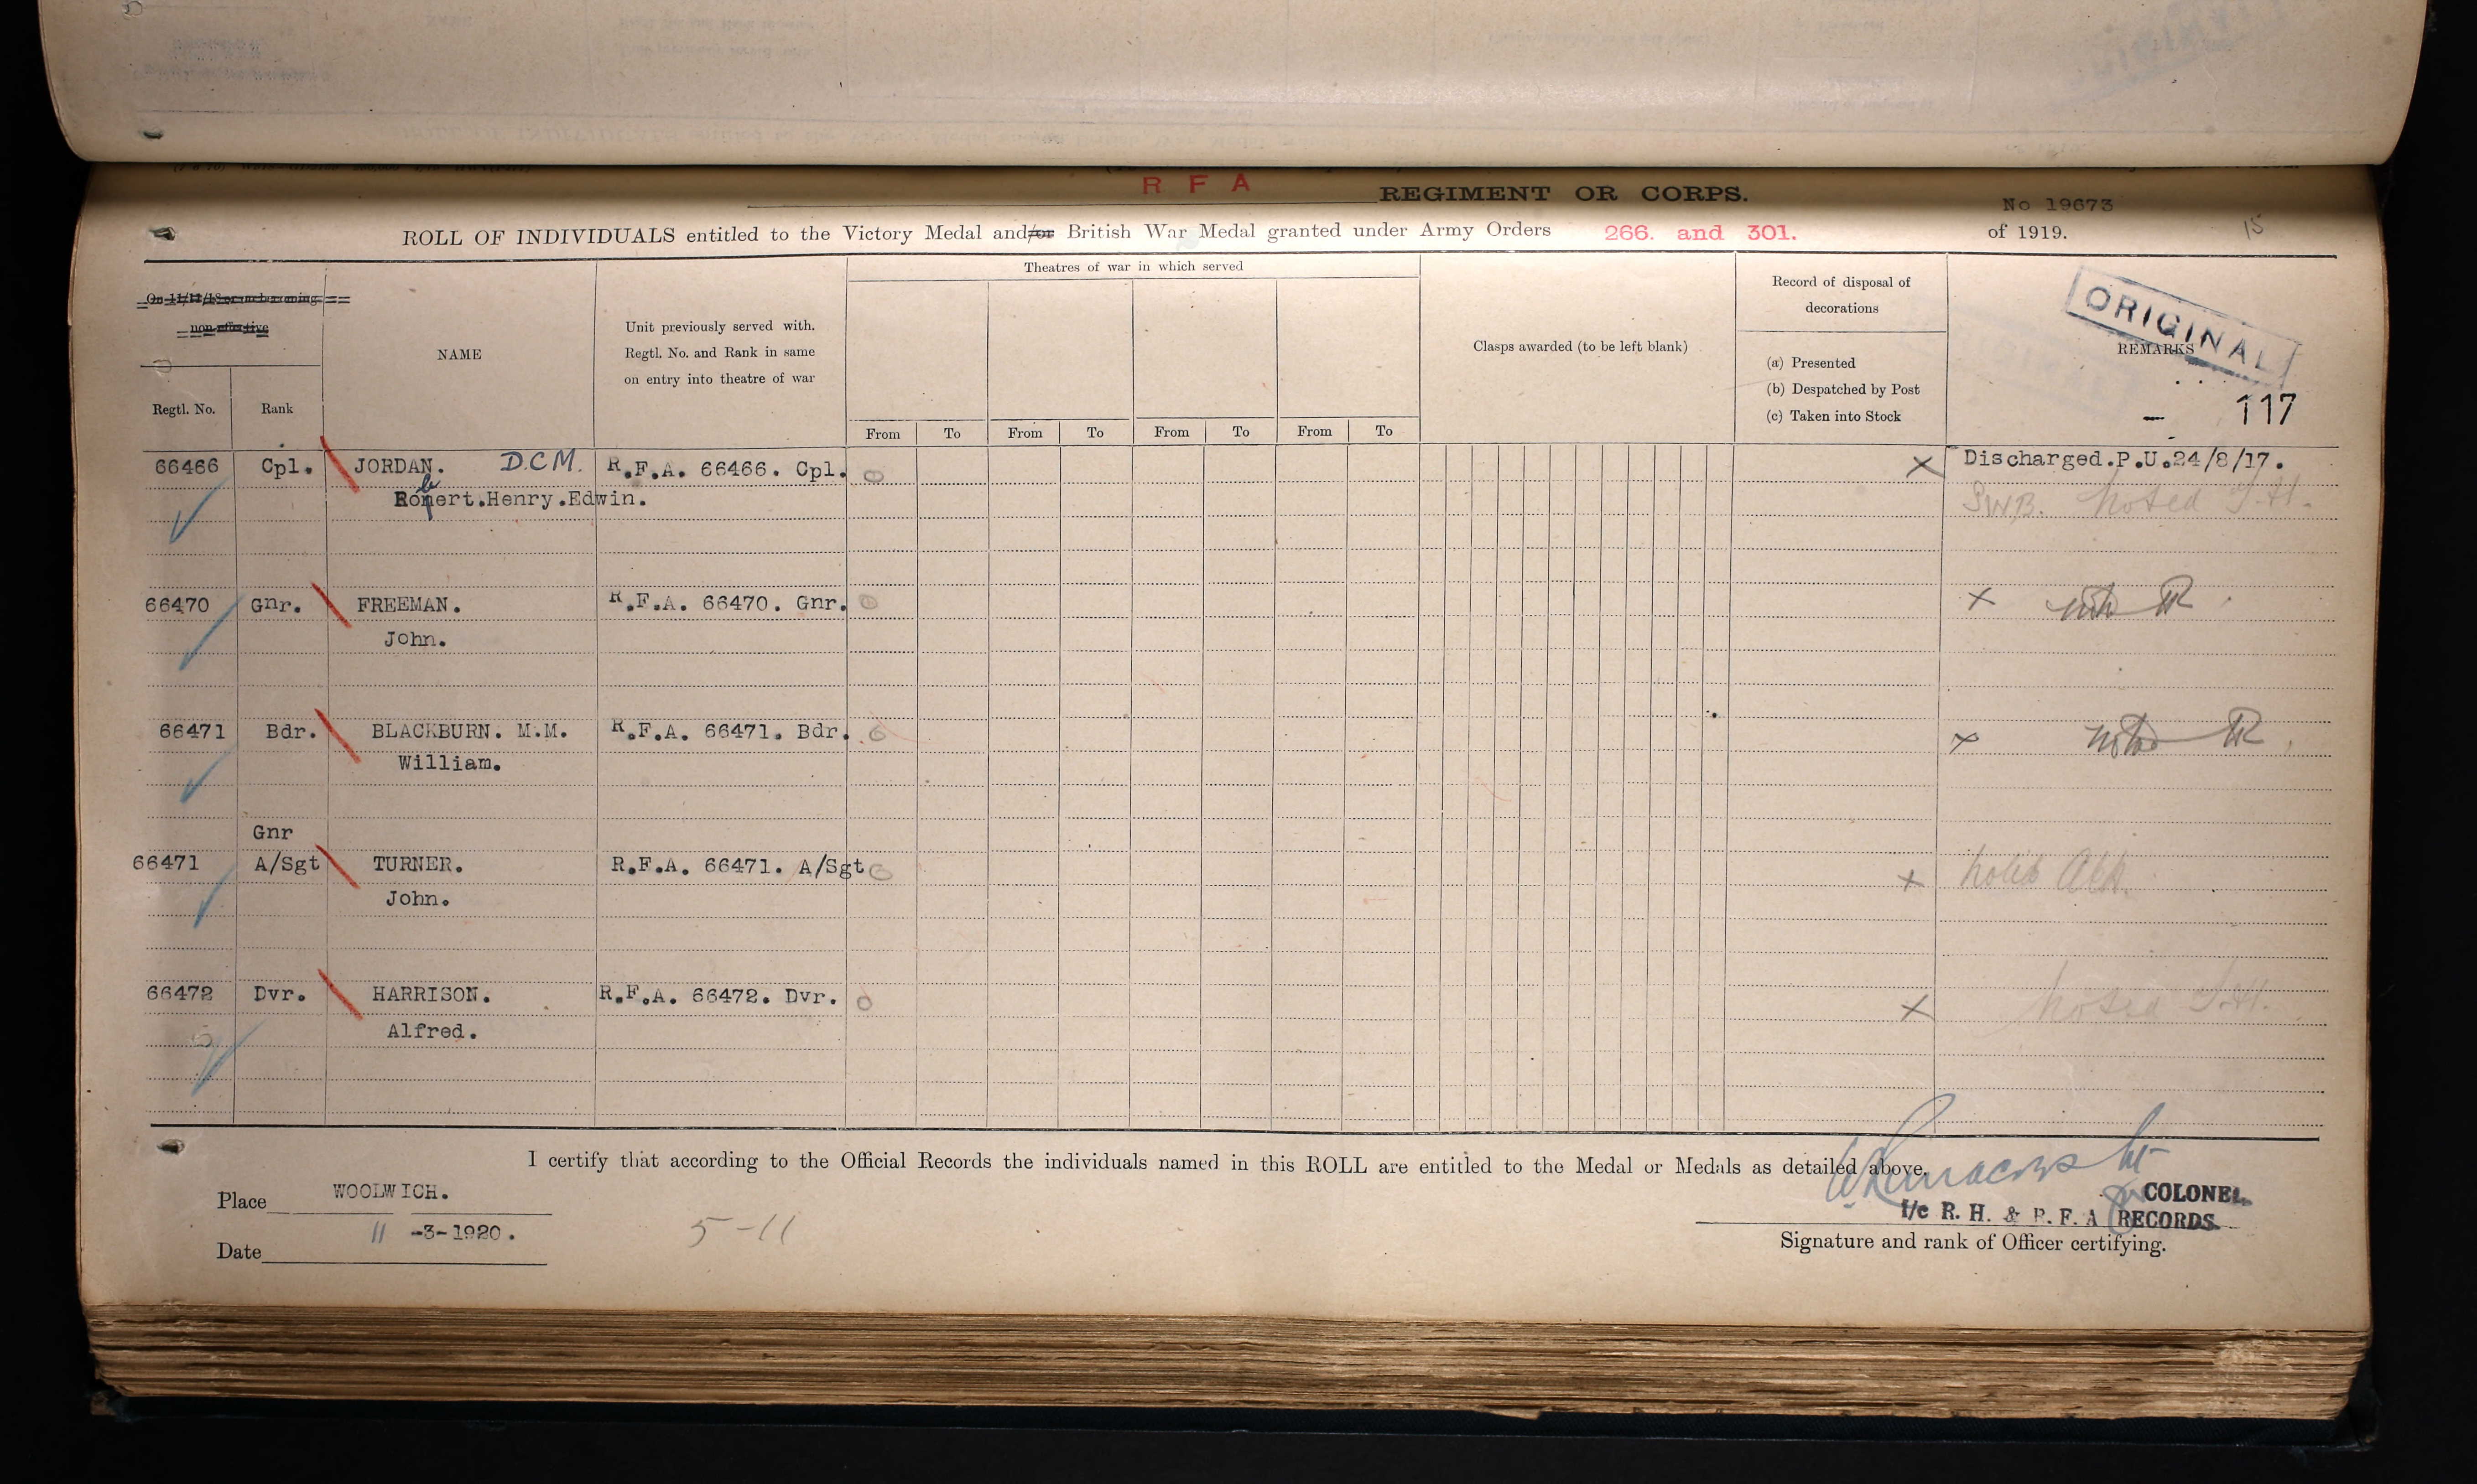 R F A REGIMENT OR CORPS.
No 19673
ROLL OF INDIVIDUALS entitled to the Victory Medal and/or British War Medal granted under Army Orders 266. and 301. of 1919.
15
On 11/11/18 or on becoming
non-effective
Regtl. No.
Rank
NAME
Unit previously served with.
Regtl. No. and Rank in same
on entry into theatre of war
Theatres of war in which served
From To From To From To From To
Clasps awarded (to be left blank)
Record of disposal of
decorations
(a) Presented
(b) Despatched by Post
(c) Taken into Stock
ORIGINAL
REMARKS
- 117
66466 Cpl. JORDAN. D.C.M. R.F.A. 66466. Cpl. X Discharged.P.U.24/8/17.
Robert.Henry.Edwin. SWB. Noted T.H.
66470 Gnr. FREEMAN. R.F.A. 66470. Gnr. X
John.
66471 Bdr. BLACKBURN. M.M. R.F.A. 66471. Bdr. X noted
William.
Gnr
66471 A/Sgt TURNER. R.F.A. 66471. A/Sgt X Noted
John.
66472 Dvr. HARRISON. R.F.A. 66472. Dvr. X Noted T.H.
Alfred.
I certify that according to the Official Records the individuals named in this ROLL are entitled to the Medal or Medals as detailed above.
Place WOOLWICH.
COLONEL
I/c R. H. & R. F. A RECORDS
Date 11 -3-1920.
5-11
Signature and rank of Officer certifying.